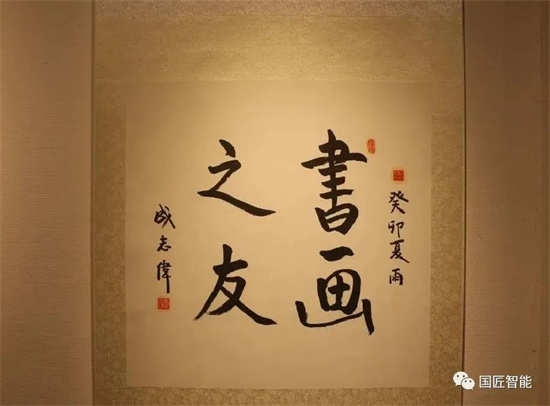 癸卯夏雨
書画
之友
成志偉
国匠智能